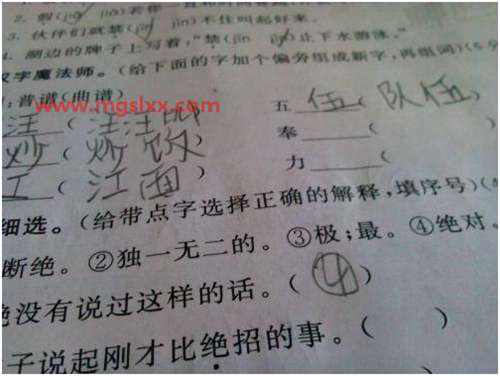 2. 假(jiǎ jià)若你一
3. 伙伴们就禁(jīn jìn)不住叫起好来。
4. 湖边的牌子上写着,“禁(jīn jìn)止下水游泳。”
汉字魔法师。(给下面的字加个偏旁组成新字,再组词)(6分
:普谱(曲谱) 五 伍 (队伍
www.mgslxx.com
汪 (汪汪叫 奉 (
炒 (炒饭 力 (
工 (江面
细选。(给带点字选择正确的解释,填序号)(4
断绝。②独一无二的。③极;最。④绝对。
绝没有说过这样的话。(④)
子说起刚才比绝招的事。( )